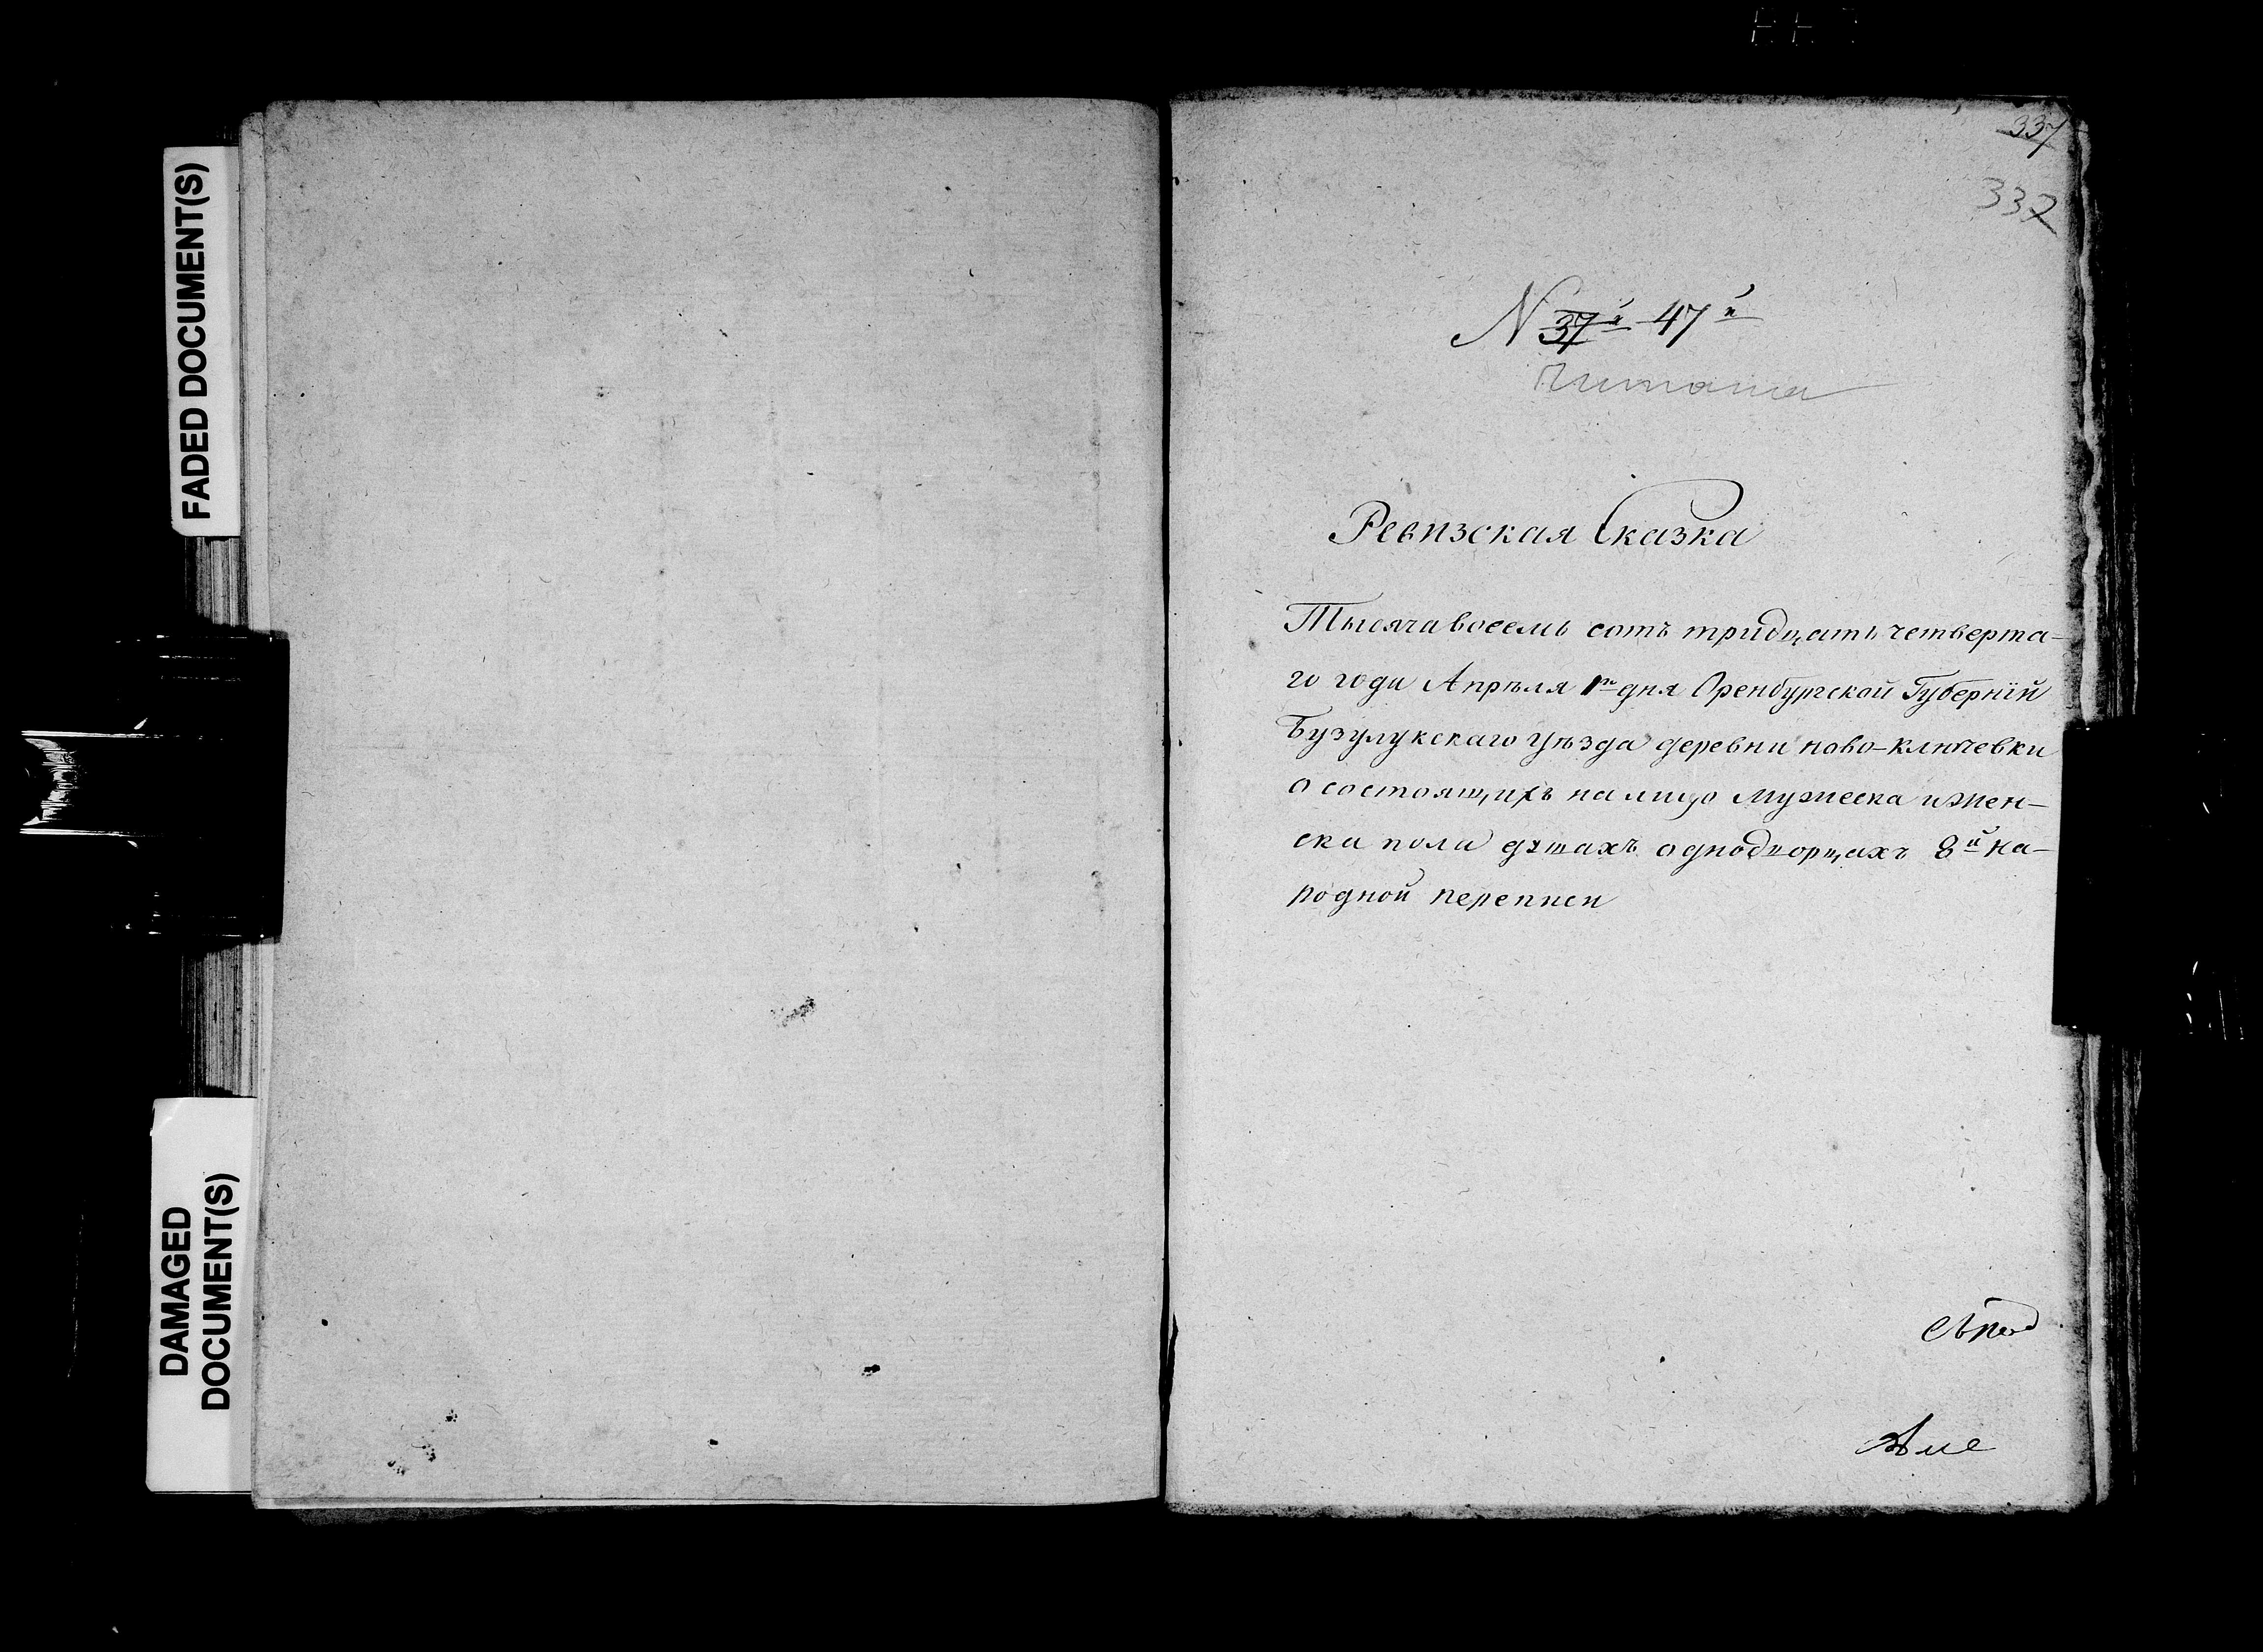 FADED DOCUMENT(S)
DAMAGED
DOCUMENT(S)
337
332
N 37й 47й
Читана
Ревизская Сказка
Тысяча восемь сотъ тридцать четверта-
го года Апрѣля 1го дня Оренбургской Губернїй
Бузулукскаго уѣзда деревни ново-ключевки
о состоящихъ на лицо мужеска и жен-
ска пола душахъ однодворцахъ 8й на-
родной переписи